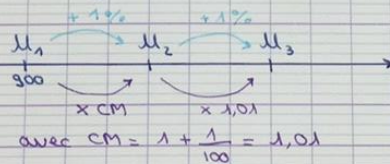 + 1% + 1%
M₁ M₂ M₃
900
× CM × 1,01
avec CM = 1 + 1/100 = 1,01